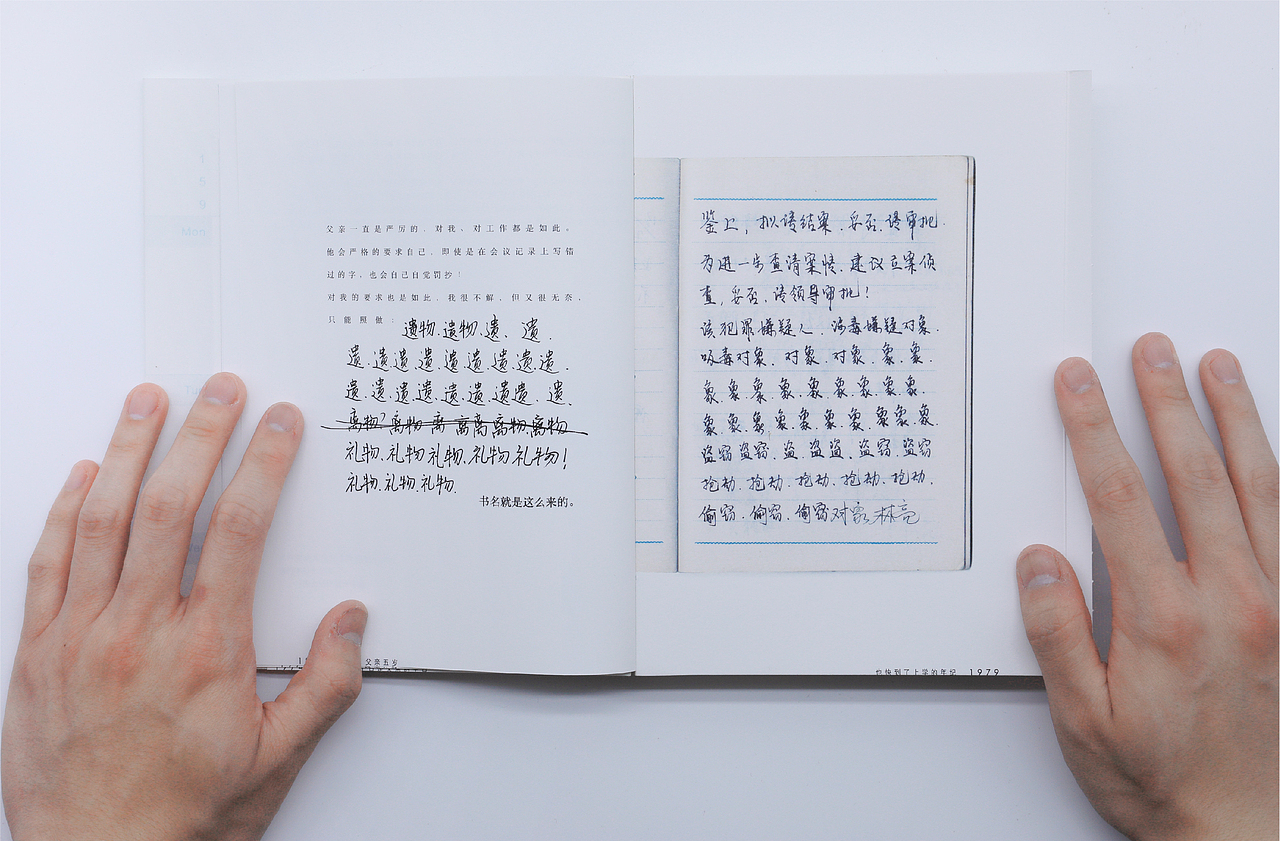 1
5
9
Mon
父亲一直是严厉的，对我、对工作都是如此。
他会严格的要求自己，即使是在会议记录上写错
过的字，也会自己自觉罚抄！
对我的要求也是如此，我很不解，但又很无奈，
只能照做：
遗物.遗物.遗、遗.
遗.遗遗.遗.遗.遗.遗.遗.遗.
遗.遗.遗.遗.遗.遗.遗遗.遗、
离物?离物 离 离离 离物.离物
礼物.礼物 礼物.礼物 礼物!
礼物.礼物.礼物.
书名就是这么来的。
父亲五岁
鉴上，拟请结案.妥否.请审批.
为进一步查清案情.建议立案侦
查，妥否.请领导审批！
该犯罪嫌疑人.涉毒嫌疑对象.
吸毒对象.对象.对象.象.象.
象.象.象.象.象.象.象.象.象.
象.象.象.象.象.象.象.象.象.象.
盗窃盗窃.盗.盗盗.盗窃.盗窃
抢劫.抢劫.抢劫.抢劫.抢劫.
偷窃.偷窃.偷窃对象.林亮
也快到了上学的年纪 1979